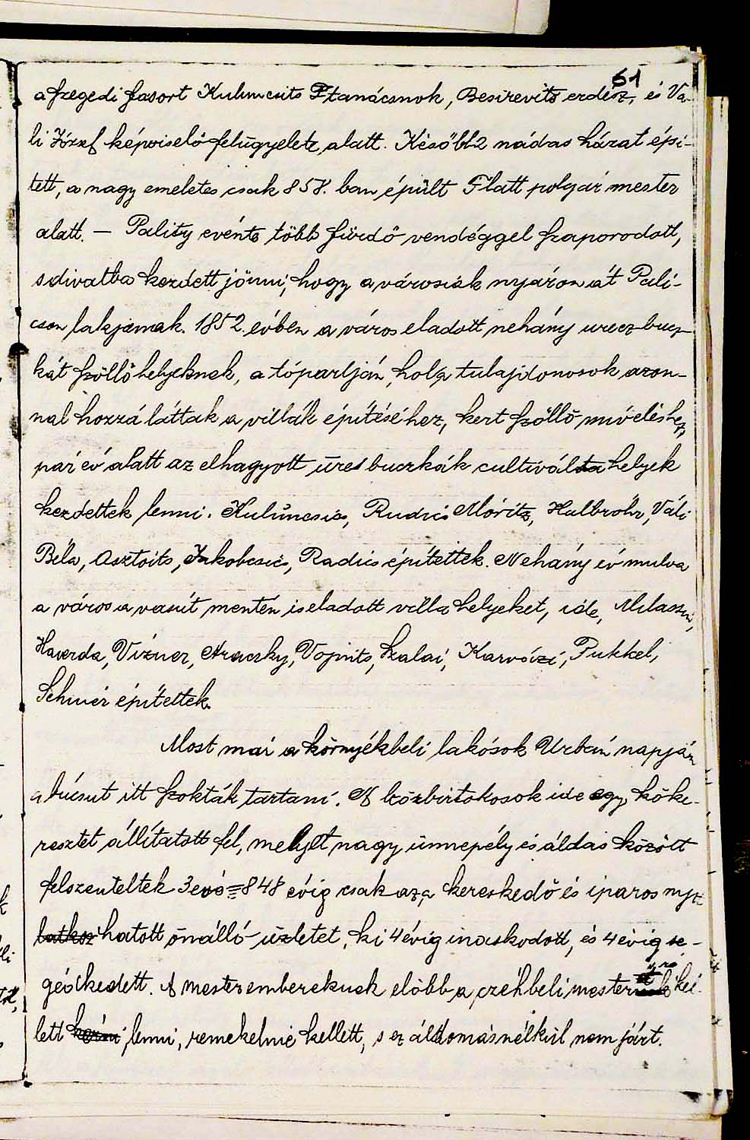 61
a szegedi fasort Kuluncsits Ftanácsnok, Besirevits erdész, és Vá-
li József képviselő felügyelete, alatt. Később 2 nádas házat épi-
tett, a nagy emeletes csak 858. ban épült Flatt polgár mester
alatt. — Pality evente több fürdő vendéggel szaporodott,
s divatba kezdett jönni, hogy a városiak nyáron át Pali-
cson lakjanak. 1852 évben a város eladott nehány uresz bucz-
kát szöllő helyeknek, a tópartján, hola tulajdonosok azon-
nal hozzá láttak a villák építéséhez, kert szöllő műveléshez,
pár év alatt az elhagyott üres buczkák cultivólta helyek
kezdettek lenni. Kuluncsic, Rudics Móritz, Halbrohr, Váli
Béla, Asztoits, Jakobcsic, Radics építettek. Nehány év mulva
a város a vasút mentén is eladott villa helyeket, ide, Milassin,
Haverda, Vizner, Aracsky, Vojnits, Szalai, Karvázi, Pukkel,
Schmér építettek.
Most már a környékbeli lakósok Urbán napján
a búcsut itt szokták tartani. A közbirtokosok ide egy, kőke-
resztet állítatott fel, melyet nagy ünnepély és áldás között
felszenteltek 848 évig csak aza kereskedő és iparos nyt
hatott önálló üzletet, ki 4 évig inaskodott, és 4 évig se-
gédkedett. A mesterembereknek előbb a czéhbeli mester kel
lett lenni, remekelnie kellett, s ez áldomás nélkül nem járt.